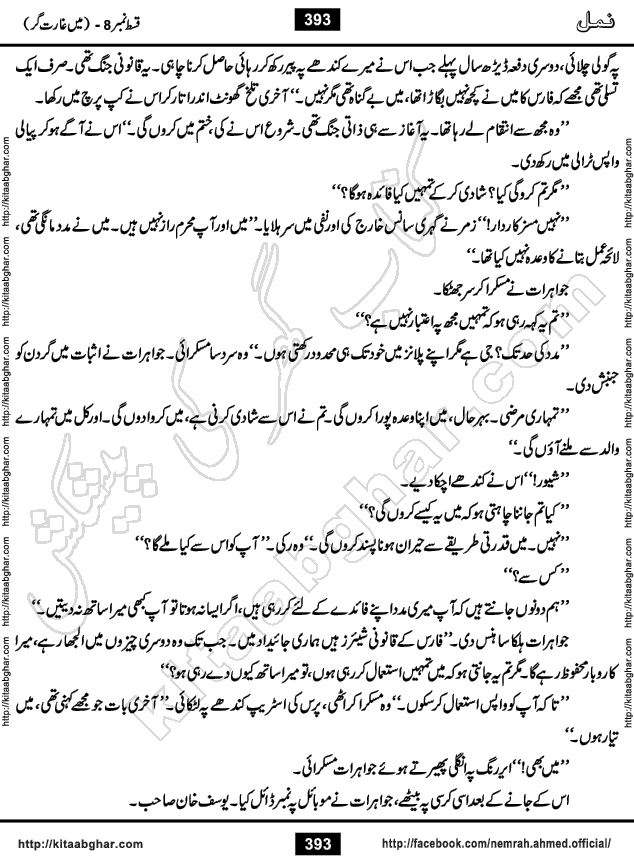 نمل
393
قسط نمبر 8 - (میں غارت گر)
پہ گولی چلائی، دوسری دفعہ ڈیڑھ سال پہلے جب اس نے میرے کندھے پہ پیر رکھ کر رہائی حاصل کرنا چاہی۔ یہ قانونی جنگ تھی۔ صرف ایک
تسلی تھی مجھے کہ فارس کا میں نے کچھ نہیں بگاڑا تھا، میں بے گناہ تھی مگر نہیں۔‘‘ آخری تلخ گھونٹ اندر اتار کر اس نے کپ پرچ میں رکھا۔
’’وہ مجھ سے انتقام لے رہا تھا۔ یہ آغاز سے ہی ذاتی جنگ تھی۔ شروع اس نے کی، ختم میں کروں گی۔‘‘ اس نے آگے ہو کر پیالی
واپس ٹرالی میں رکھ دی۔
’’مگر تم کرو گی کیا؟ شادی کر کے تمہیں کیا فائدہ ہوگا؟‘‘
’’نہیں مسز کاردار!‘‘ زمر نے گہری سانس خارج کی اور نفی میں سر ہلایا۔ ’’میں اور آپ محرم راز نہیں ہیں۔ میں نے مدد مانگی تھی،
لائحہ عمل بتانے کا وعدہ نہیں کیا تھا۔‘‘
جواہرات نے مسکرا کر سر جھٹکا۔
’’تم یہ کہہ رہی ہو کہ تمہیں مجھ پہ اعتبار نہیں ہے؟‘‘
’’مدد کی حد تک؟ جی ہے مگر اپنے پلانز میں خود تک ہی محدود رکھتی ہوں۔‘‘ وہ سرد سا مسکرائی۔ جواہرات نے اثبات میں گردن کو
جنبش دی۔
’’تمہاری مرضی۔ بہرحال، میں اپنا وعدہ پورا کروں گی۔ تم نے اس سے شادی کرنی ہے، میں کروا دوں گی۔ اور کل میں تمہارے
والد سے ملنے آؤں گی۔‘‘
’’شیور!‘‘ اس نے کندھے اچکا دیے۔
’’کیا تم جاننا چاہتی ہو کہ میں یہ کیسے کروں گی؟‘‘
’’نہیں۔ میں قدرتی طریقے سے حیران ہونا پسند کروں گی۔‘‘ وہ رکی۔ ’’آپ کو اس سے کیا ملے گا؟‘‘
’’کس سے؟‘‘
’’ہم دونوں جانتے ہیں کہ آپ میری مدد اپنے فائدے کے لئے کر رہی ہیں، اگر ایسا نہ ہوتا تو آپ کبھی میرا ساتھ نہ دیتیں۔‘‘
جواہرات ہلکا سا ہنس دی۔ ’’فارس کے قانونی شیئرز ہیں ہماری جائیداد میں۔ جب تک وہ دوسری چیزوں میں الجھا رہے، میرا
کاروبار محفوظ رہے گا۔ مگر تم یہ جانتی ہو کہ میں تمہیں استعمال کر رہی ہوں، تو میرا ساتھ کیوں دے رہی ہو؟‘‘
’’تاکہ آپ کو واپس استعمال کر سکوں۔‘‘ وہ مسکرا کر اٹھی، پرس کی اسٹریپ کندھے پہ لٹکائی۔ ’’آخری بات جو مجھے کہنی تھی، میں
تیار ہوں۔‘‘
’’میں بھی!‘‘ ایر رنگ پہ انگلی پھیرتے ہوئے جواہرات مسکرائی۔
اس کے جانے کے بعد اسی کرسی پہ بیٹھے، جواہرات نے موبائل پہ نمبر ڈائل کیا۔ یوسف خان صاحب۔
کتاب گھر کی پیشکش
kitaabghar.com
http://kitaabghar.com
http://kitaabghar.com
http://kitaabghar.com
http://kitaabghar.com
http://kitaabghar.com
http://kitaabghar.com
http://kitaabghar.com
http://kitaabghar.com
http://kitaabghar.com
http://kitaabghar.com
http://kitaabghar.com
http://kitaabghar.com
http://kitaabghar.com
393
http://facebook.com/nemrah.ahmed.official/